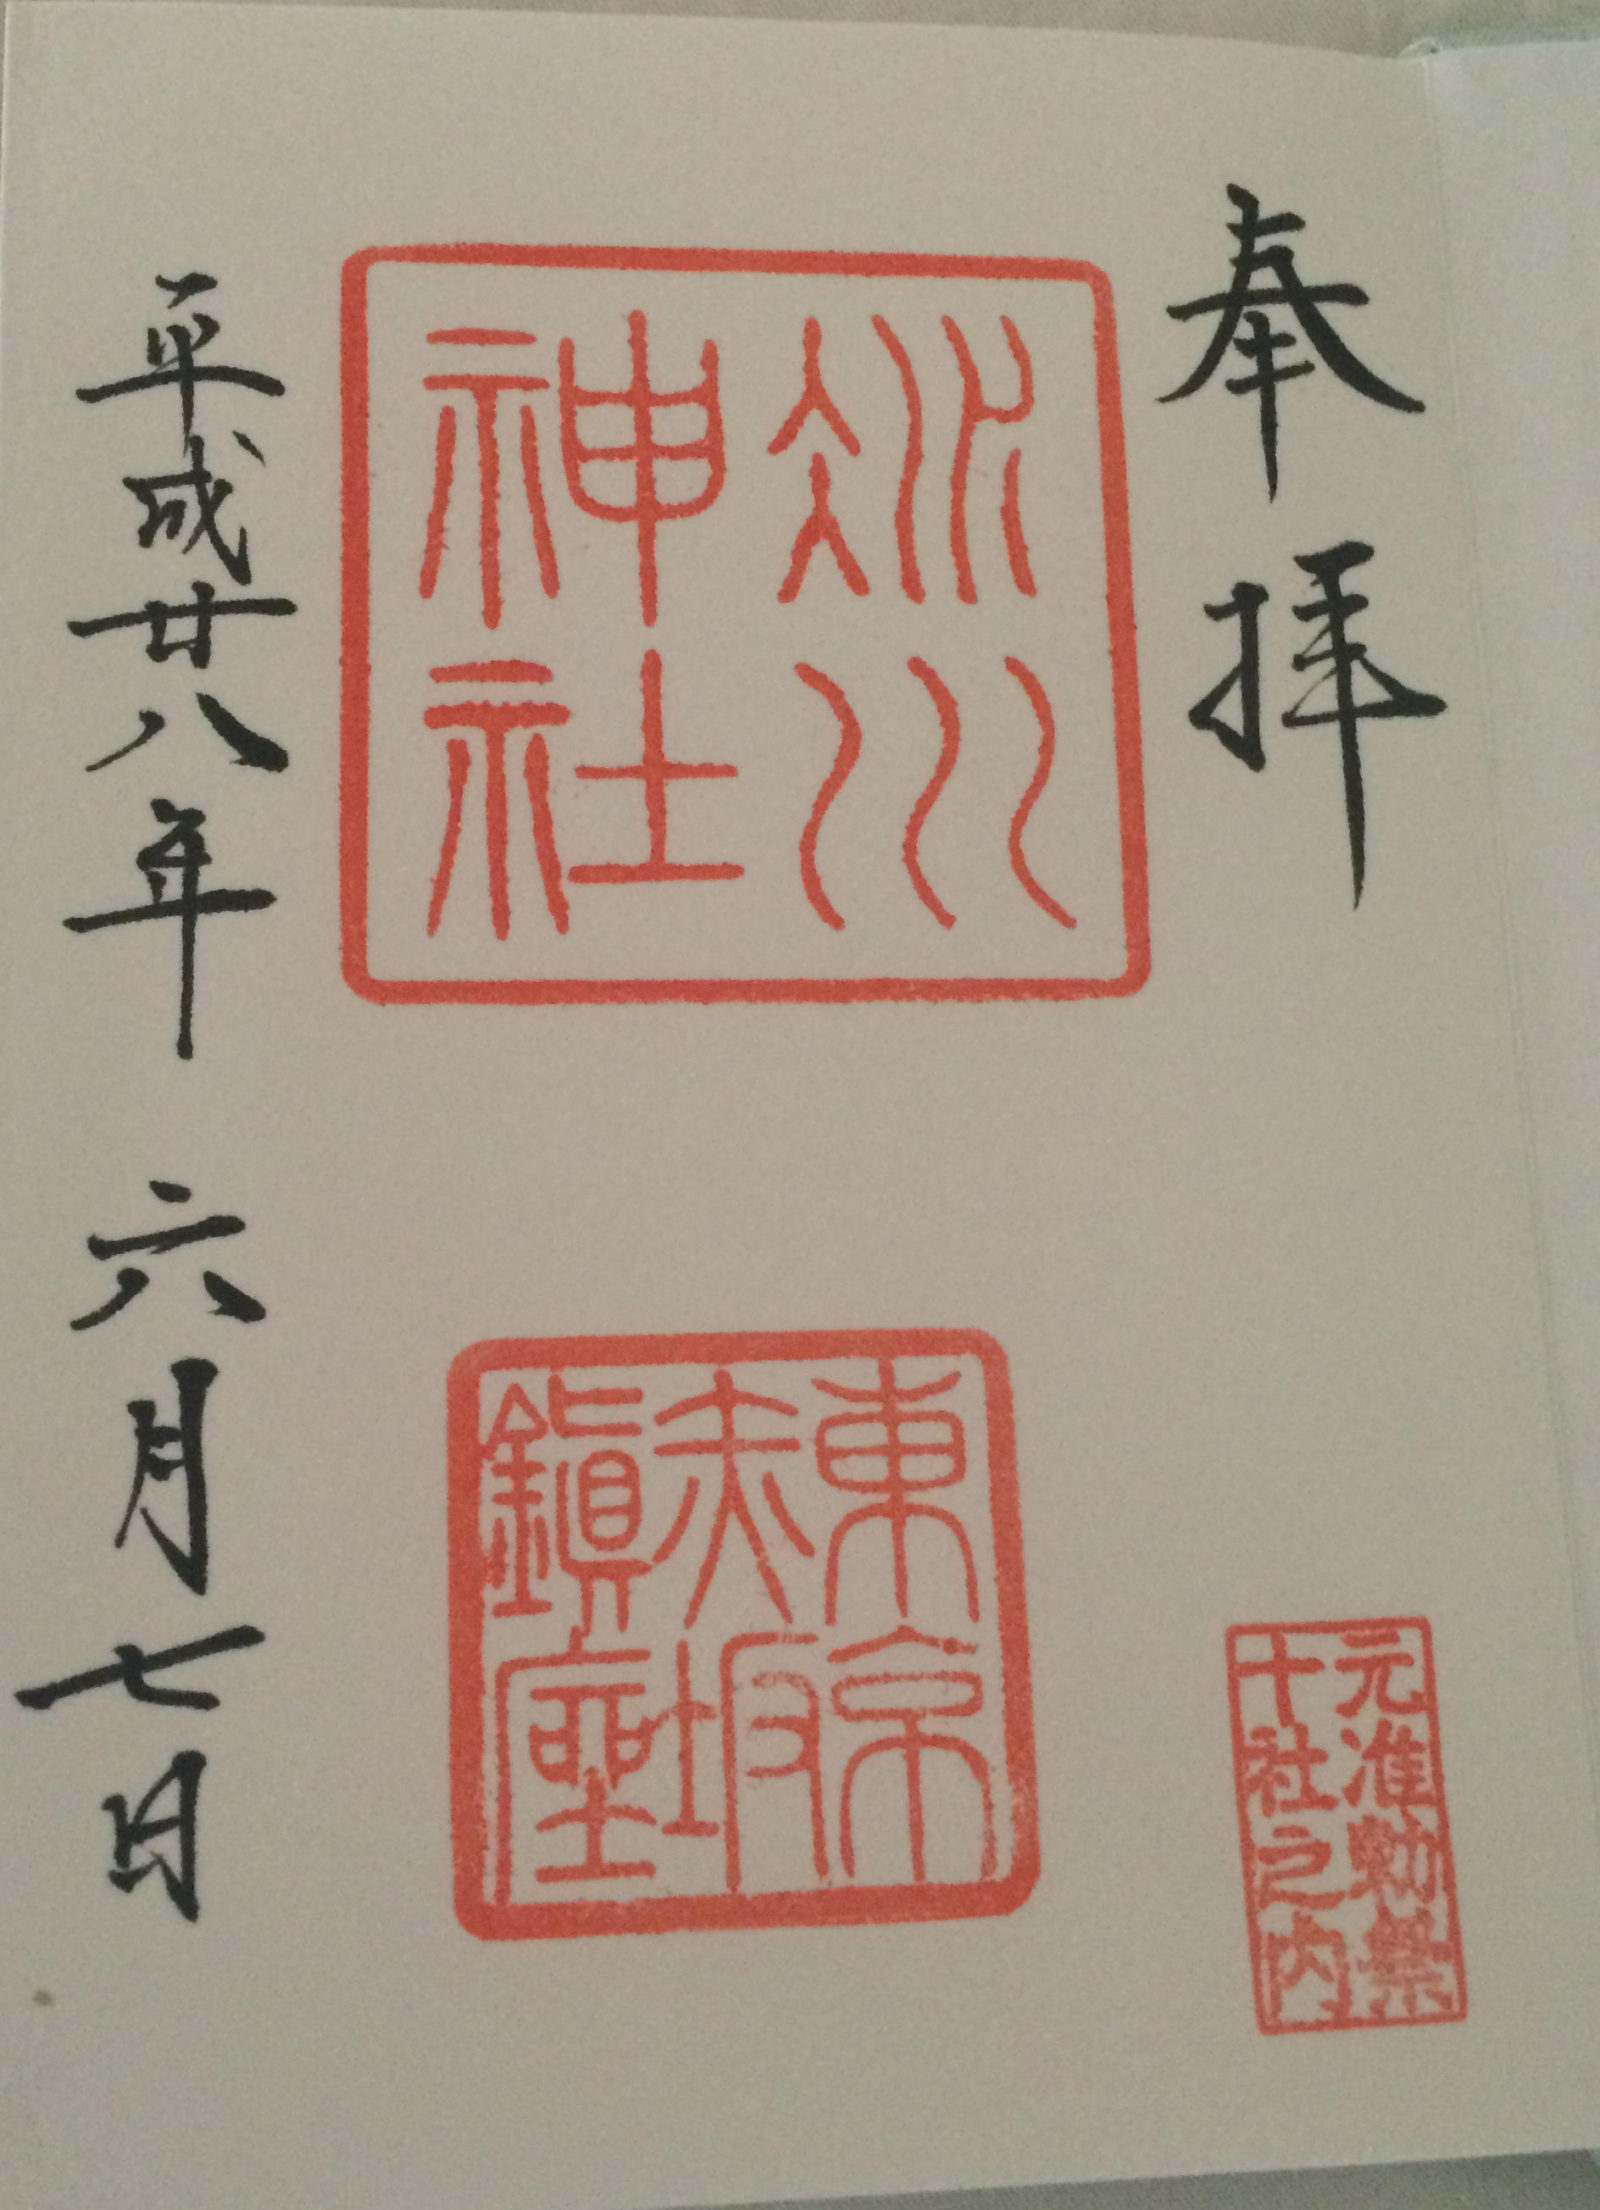 奉拝
氷川
神社
東京
赤坂
鎮座
元准勅祭
十社之内
平成廿八年 六月七日